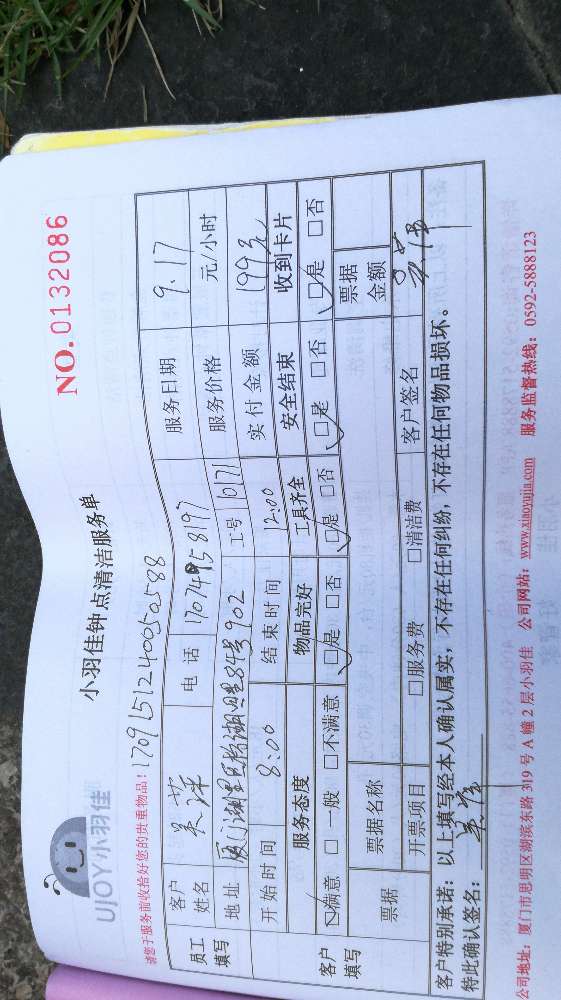 UJOY小羽佳
小羽佳钟点清洁服务单
NO.0132086
请您于服务前收拾好您的贵重物品！
1709151240050588
员工填写
客户姓名 吴萍 电话 服务日期 9.17
地址 84号902 工号 10171 服务价格 元/小时
开始时间 8:00 结束时间 12:00 实付金额 199元
客户填写
服务态度 物品完好 工具齐全 安全结束 收到卡片
☑满意 □一般 □不满意 ☑是 □否 ☑是 □否 ☑是 □否 ☑是 □否
票据 票据名称 票据金额
开票项目 □服务费 □清洁费 客户签名 吴萍
客户特别承诺：以上填写经本人确认属实，不存在任何纠纷，不存在任何物品损坏。
特此确认签名： 吴萍
公司地址：厦门市思明区湖滨东路 319 号 A 幢 2 层小羽佳 公司网站：www.xiaoyujia.com 服务监督热线：0592-5888123